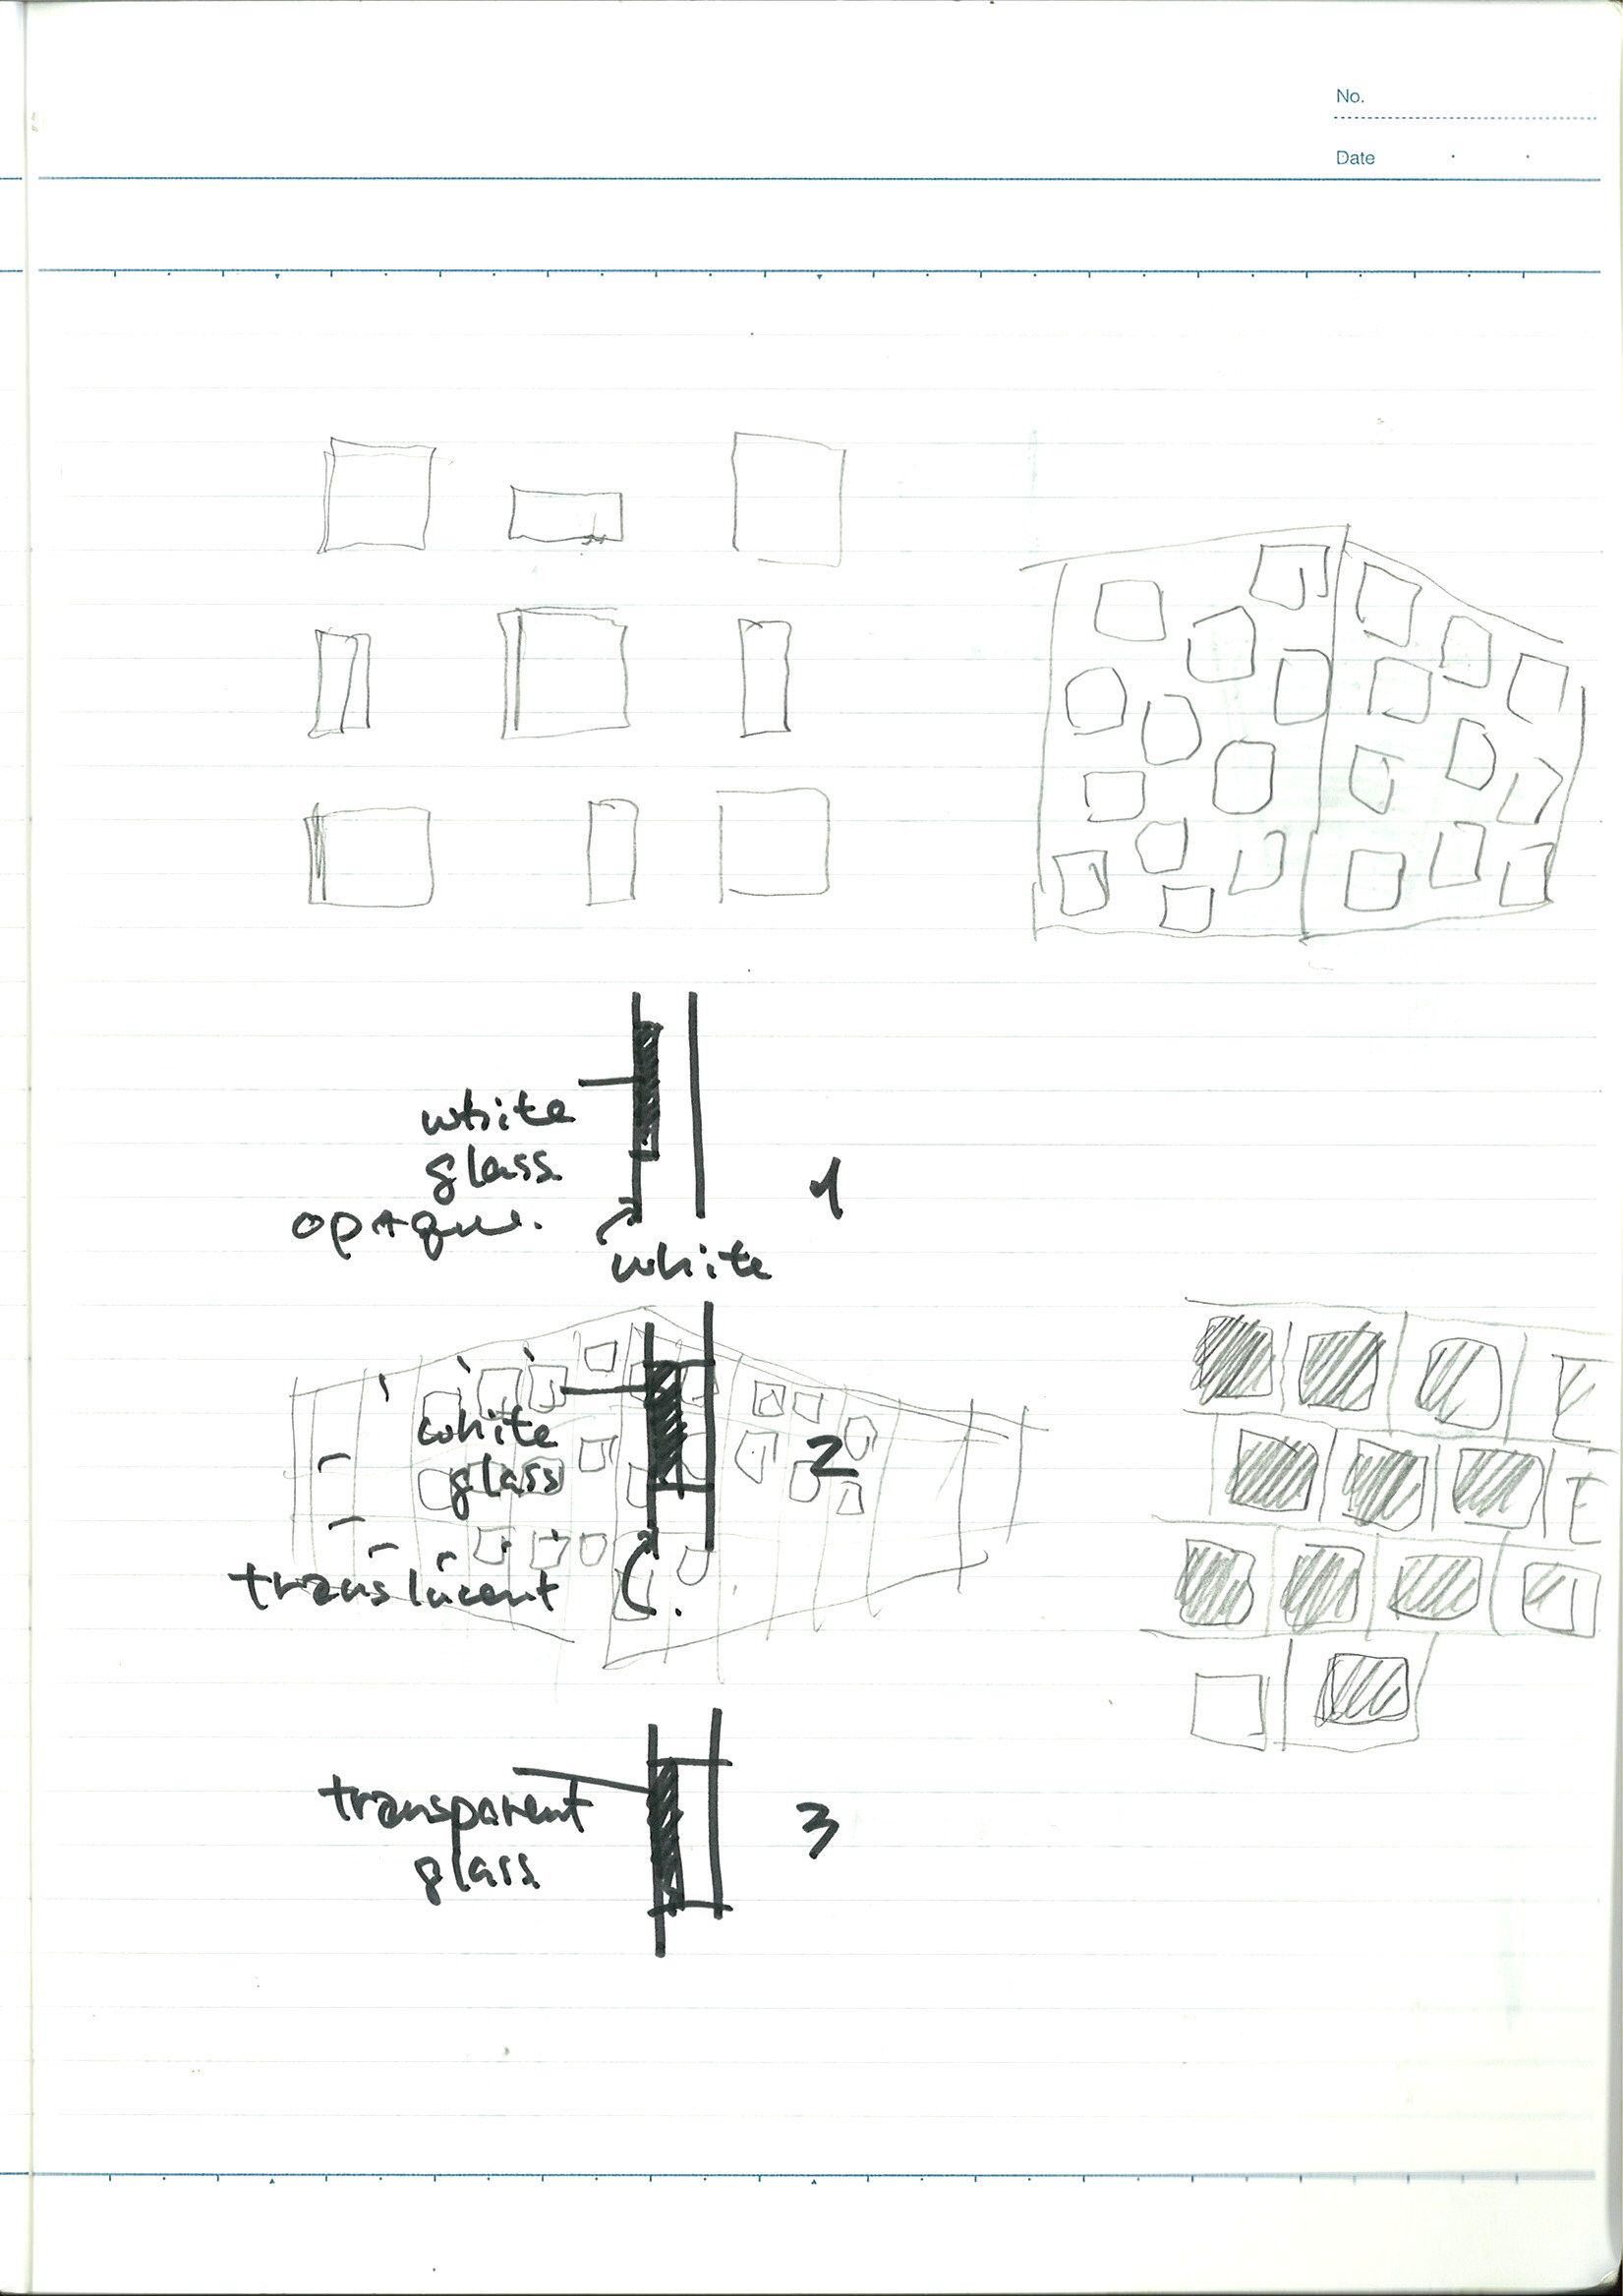 No.
Date
white
glass
opaque.
white
1
white
glass
2
translucent
transparent
glass
3